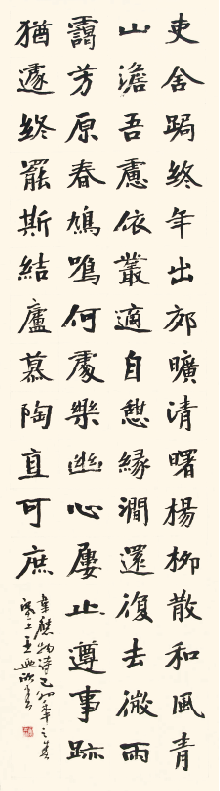 吏舍跼終年出郊曠清曙楊柳散和風青
山澹吾慮依叢適自憩緣澗還復去微雨
靄芳原春鳩鳴何處樂幽心屢止遵事跡
猶遽終罷斯結廬慕陶直可庶
韋應物詩己卯年之